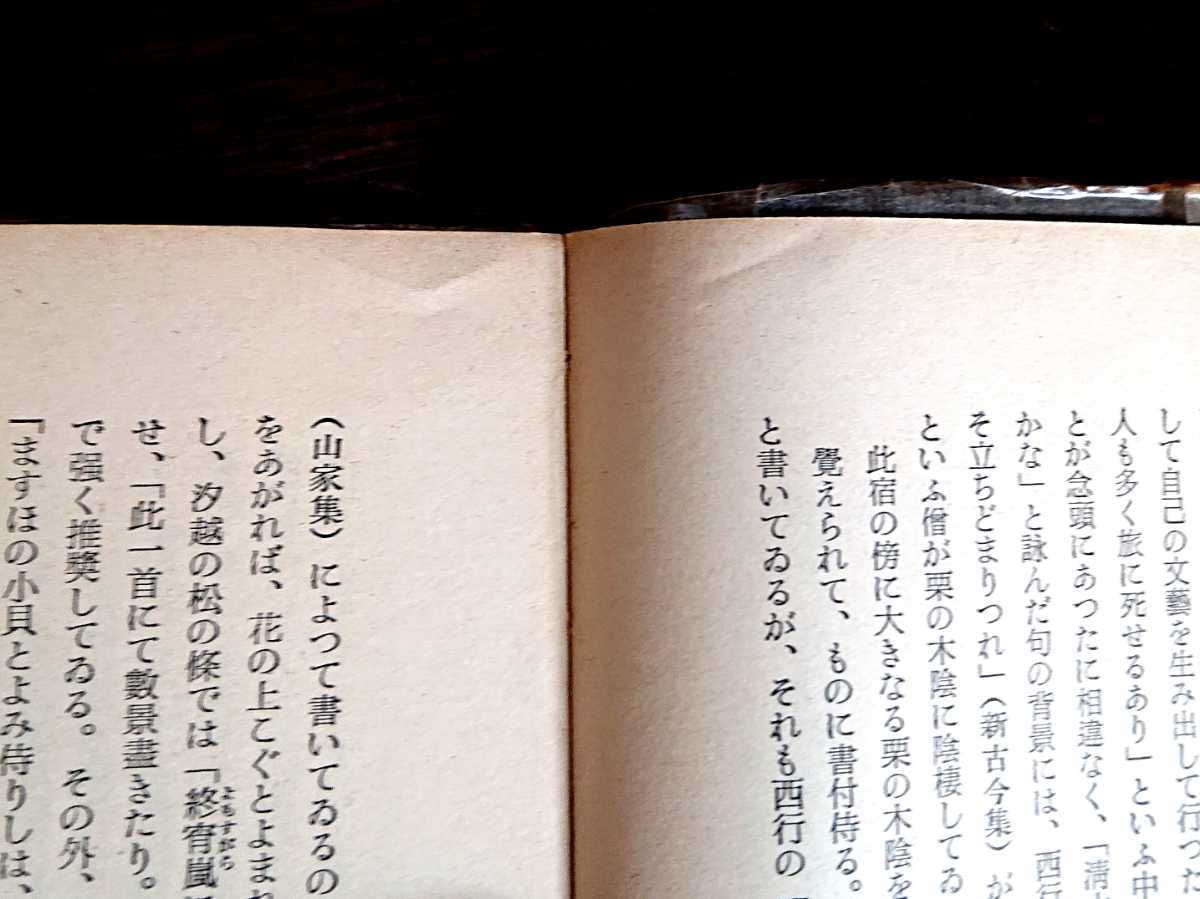 して自己の文藝を生み出して行つた
人も多く旅に死せるあり」といふ中
とが念頭にあつたに相違なく、「淸
かな」と詠んだ句の背景には、西行
そ立ちどまりつれ」（新古今集）が
といふ僧が栗の木陰に陰棲してゐ
此宿の傍に大きなる栗の木陰を
覺えられて、ものに書付侍る。
と書いてゐるが、それも西行の
（山家集）によつて書いてゐるの
をあがれば、花の上こぐとよまれ
し、汐越の松の條では「終宵嵐
よもすがら
せ、「此一首にて數景盡きたり。
で强く推奬してゐる。その外、
「ますほの小貝とよみ侍りしは、